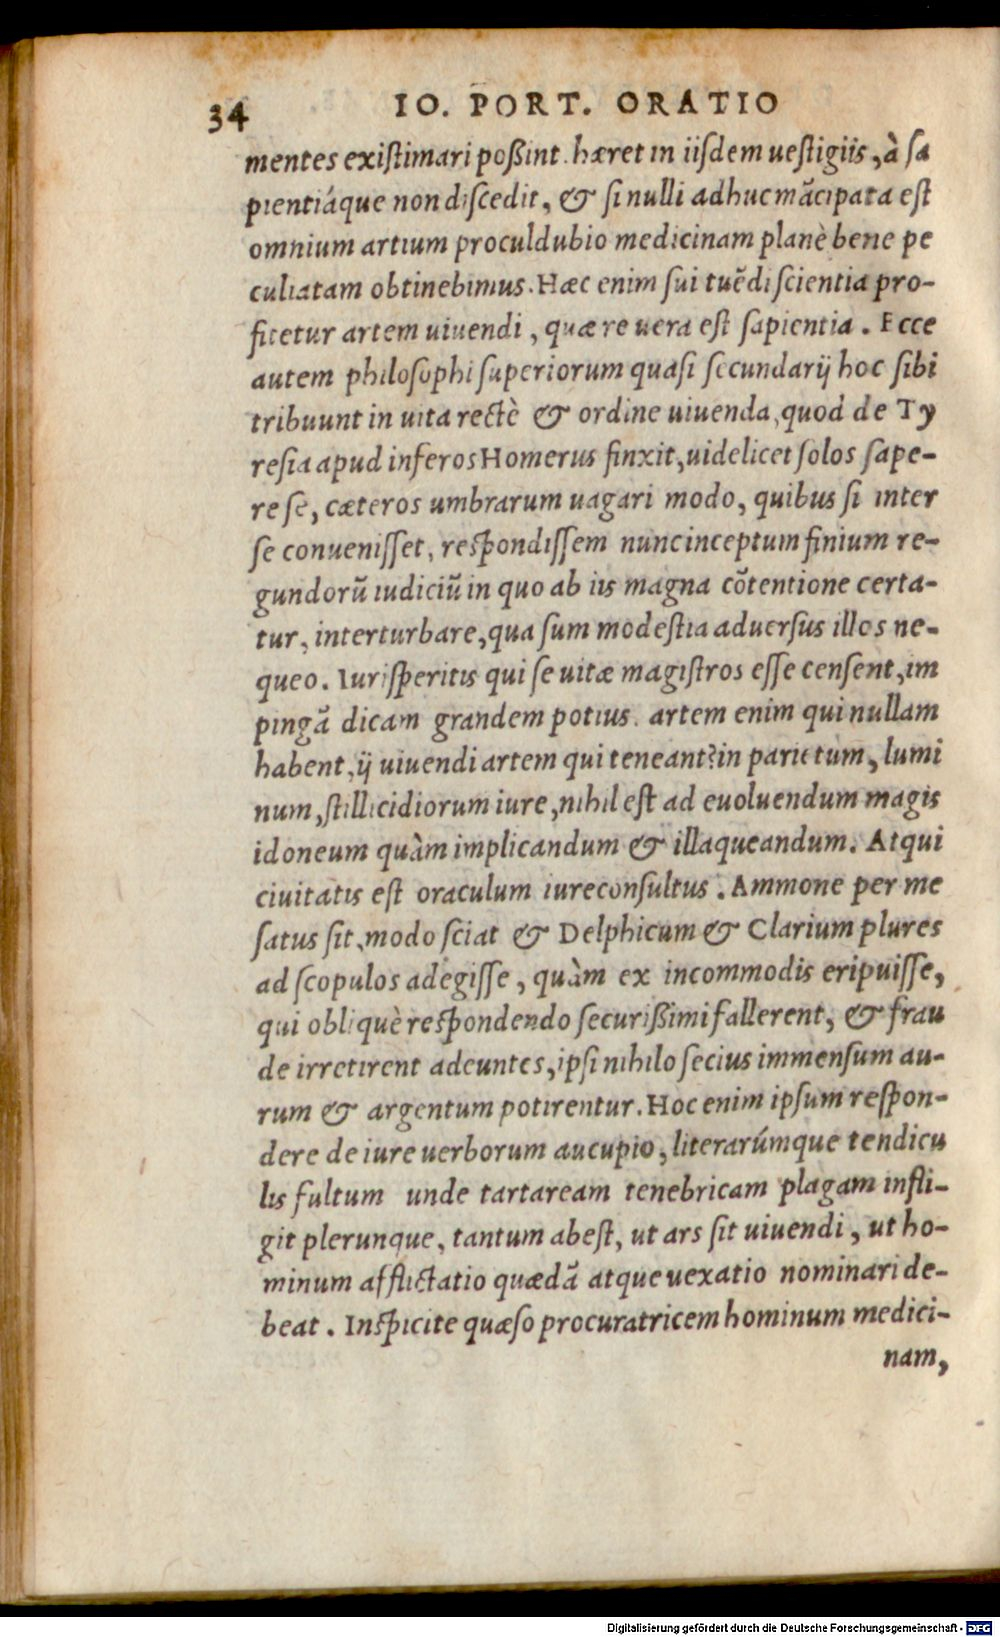 34 IO. PORT. ORATIO
mentes existimari poßint. hæret in iisdem uestigiis, à sa
pientiáque non discedit, & si nulli adhuc mãcipata est
omnium artium proculdubio medicinam planè bene pe
culiatam obtinebimus. Hæc enim sui tuẽdi scientia pro-
fitetur artem uiuendi, quæ re uera est sapientia. Ecce
autem philosophi superiorum quasi secundarij hoc sibi
tribuunt in uita rectè & ordine uiuenda, quod de Ty
resia apud inferos Homerus finxit, uidelicet solos sape-
re se, cæteros umbrarum uagari modo, quibus si inter
se conuenisset, respondissem nunc inceptum finium re-
gundorũ iudiciũ in quo ab iis magna cõtentione certa-
tur, interturbare, qua sum modestia aduersus illos ne-
queo. Iurisperitis qui se uitæ magistros esse censent, im
pingã dicam grandem potius. artem enim qui nullam
habent, ij uiuendi artem qui teneant? in parietum, lumi
num, stillicidiorum iure, nihil est ad euoluendum magis
idoneum quàm implicandum & illaqueandum. Atqui
ciuitatis est oraculum iureconsultus. Ammone per me
satus sit, modo sciat & Delphicum & Clarium plures
ad scopulos adegisse, quàm ex incommodis eripuisse,
qui obliquè respondendo securißimi fallerent, & frau
de irretirent adeuntes, ipsi nihilo secius immensum au-
rum & argentum potirentur. Hoc enim ipsum respon-
dere de iure uerborum aucupio, literarúmque tendicu
lis fultum unde tartaream tenebricam plagam infli-
git plerunque, tantum abest, ut ars sit uiuendi, ut ho-
minum afflictatio quædã atque uexatio nominari de-
beat. Inspicite quæso procuratricem hominum medici-
nam,
Digitalisierung gefördert durch die Deutsche Forschungsgemeinschaft - DFG